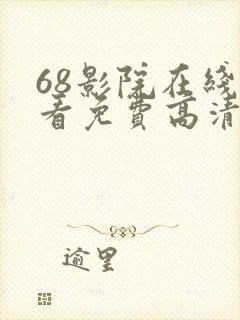 68影院在线
看免费高清
逾里